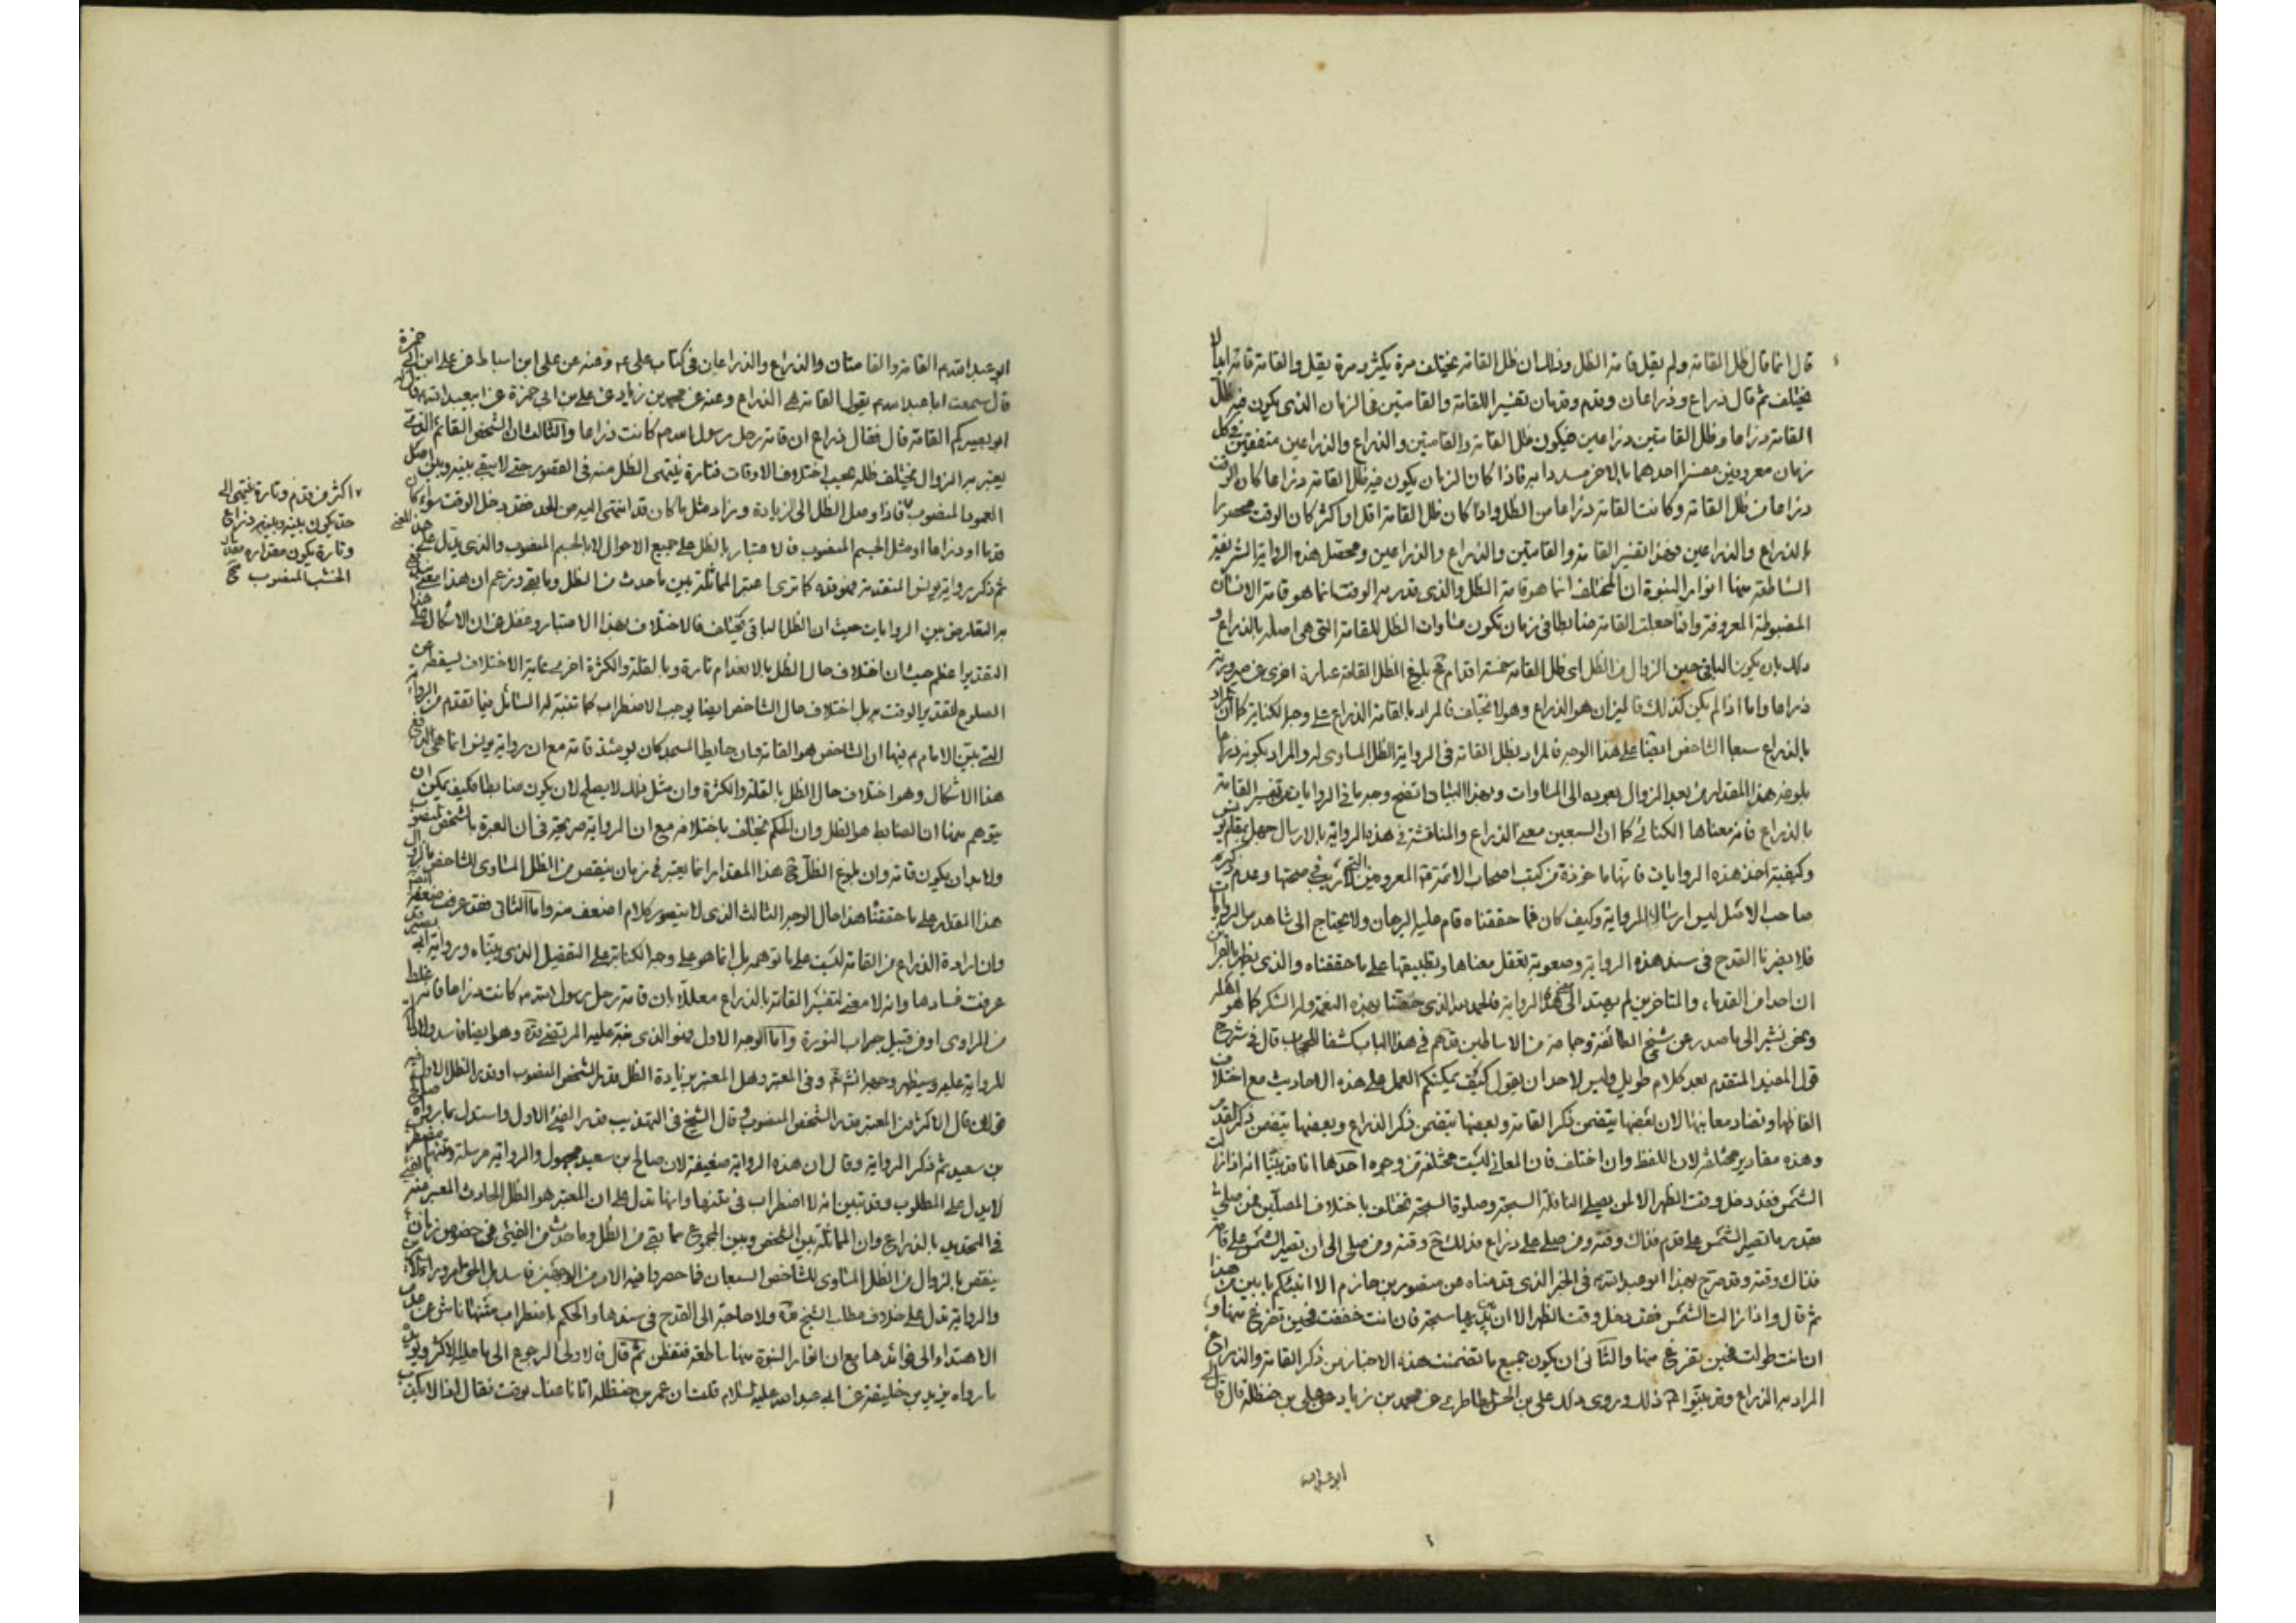 قال انما قال ظل القامة ولم يقل قامة الظل وذلك ان ظل القامة يختلف مرة يكثر ومرة يقل والقامة قامة ابدا لا
يختلف ثم قال ذراع وذراعان وقدم وقدمان تفسيرا للقامة والقامتين في الزمان الذي يكون فيه ظل
القامة ذراعا وظل القامتين ذراعين فيكون ظل القامة والقامتين والذراع والذراعين متفقين في كل
زمان معروفين مفسرا احدهما بالاخر مسددا به فاذا كان الزمان يكون فيه ظل القامة ذراعا كان الوقت
ذراعا من ظل القامة وكانت القامة ذراعا من الظل واذا كان ظل القامة اقل او اكثر كان الوقت محصورا
بالذراع والذراعين فهذا تفسير القامة والقامتين والذراع والذراعين ومحصل هذه الرواية الشريفة
الساطعة منها انوار النبوة ان المختلف انما هو قامة الظل والذي قدر به الوقت انما هو قامة الانسان
المضبوطة المعروفة وانما جعلت القامة ضابطا في زمان تكون مساوات الظل للقامة التي هي اصله بالذراع و
ذلك بان يكون الباقي حين الزوال من الظل اي ظل القامة خمسة اقدام فح بلوغ الظل القامة عبارة اخرى عن صيرورته
ذراعا واما اذا لم يكن كذلك فالميزان هو الذراع وهو لا يختلف فالمراد بالقامة الذراع على وجه الكناية كما ان المراد
بالذراع سبعا الشاخص ايضا على هذا الوجه فالمراد بظل القامة في الرواية الظل المساوي له والمراد بكونه ذراعا
بلوغه هذا المقدار من بعد الزوال بعوده الى المساوات وبهذا البيان اتضح وجه ما في الروايات من تفسير القامة
بالذراع فانه معناها الكنائي كما ان السبعين معنى الذراع والمناقشة في هذه الرواية بالارسال جهل بمقام يونس
وكيفية اخذ هذه الروايات فانها ماخوذة من كتب اصحاب الائمة ع المعروفين التي لا ريب في صحتها وعدم ذكره
صاحب الاصل ليس ارسالا للرواية وكيف كان فما حققناه قام عليه البرهان ولا يحتاج الى شاهد من الروايات
فلا يضرنا القدح في سند هذه الرواية وصعوبة تعقل معناها وتطبيقها على ما حققناه والذي يظهر بالعيان
ان احدا من القدماء والمتاخرين لم يهتد الى معنى هذه الرواية فالحمد لله الذي خصنا بهذه النعمة وله الشكر كما هو اهله
ونحن نشير الى ما صدر عن شيخ الطائفة وجماعة من الاساطين قدهم في هذا الباب كشفا للحجاب قال في شرح
قول المفيد المتقدم بعد كلام طويل وليس لاحد ان يقول كيف يمكنكم العمل على هذه الاحاديث مع اختلاف
الفاظها وتضاد معانيها لان بعضها يتضمن ذكر القامة وبعضها يتضمن ذكر الذراع وبعضها يتضمن ذكر القدم
وهذه مقادير مختلفة لان اللفظ وان اختلف فان المعاني ليست مختلفة من وجوه احدها انا قد بينا انه اذا زالت
الشمس فقد دخل وقت الظهر الا لمن يصلي النافلة السبحة وصلوة السبحة تختلف باختلاف المصلين فمن صلى
بقدر ما تصير الشمس على قدم فذاك وقته ومن صلى على ذراع فذلك ح وقته ومن صلى الى ان تصير الشمس على قامة
فذاك وقته وقد صرح بهذا ابو عبد الله ع في الخبر الذي قدمناه عن منصور بن حازم الا انبئكم بابين من هذا
ثم قال واذا زالت الشمس فقد دخل وقت الظهر الا ان بين يديها سبحة فان انت خففت فحين تفرغ منها و
ان انت طولت فحين تفرغ منها والثاني ان يكون جميع ما تضمنت هذه الاخبار من ذكر القامة والذراع
المراد به الذراع وقد بينوا ع ذلك وروى ذلك علي بن الحسن الطاطري عن محمد بن زياد عن علي بن حنظلة قال قال لي
ابو عبد الله
ابو عبد الله ع القامة والقامتان والذراع والذراعان في كتاب علي ع وعنه عن علي ابن اسباط عن علي ابن ابي حمزة
قال سمعت ابا عبد الله ع يقول القامة هي الذراع وعنه عن محمد بن زياد عن علي بن ابي حمزة عن ابي عبد الله ع قال له
ابو بصير كم القامة قال فقال ذراع ان قامة رحل رسول الله ص كانت ذراعا والثالث ان الشخص القائم الذي
يعتبر به الزوال يختلف ظله بحسب اختلاف الاوقات فتارة ينتهي الظل منه في القصور حتى لا يبقى بينه وبين اصل
العمود المنصوب فاذا وصل الظل الى الزيادة وزاد مثل ما كان قد انتهى اليه من الحد فقد دخل الوقت سواء كان
قدما او ذراعا او مثل الجسم المنصوب فالاعتبار بالظل على جميع الاحوال لا بالجسم المنصوب والذي يدل على هذا المعنى
ثم ذكر رواية يونس المتقدمة فهو قده كما ترى اعتبر المماثلة بين ما حدث من الظل وما بقي وزعم ان هذا معنى
به التعارض بين الروايات حيث ان الظل الباقي يختلف فالاختلاف بهذا الاعتبار وغفل عن ان الاشكال على هذا
التقدير اعظم حيث ان اختلاف حال الظل بالانعدام تارة وبالقلة والكثرة اخرى غاية الاختلاف يسقطه عن
الصلوح لتقدير الوقت به بل اختلاف حال الشاخص ايضا يوجب الاضطراب كما تنبه له السائل فيما تقدم من الرواية
التي بين الامام ع فيها ان الشاخص هو القامة وان حايط المسجد كان يومئذ قامة مع ان رواية يونس انما هي لدفع
هذا الاشكال وهو اختلاف حال الظل بالقلة والكثرة وان مثل ذلك لا يصلح لان يكون ضابطا فكيف يمكن ان
يتوهم منها ان الضابط هو الظل وان الحكم يختلف باختلافه مع ان الرواية صريحة في ان العبرة بالشخص المنصوب
ولا بد ان يكون قامة وان بلوغ الظل ح هذا المقدار انما يعتبر في زمان ينقص من الظل المساوي للشاخص بالزوال
هذا المقدار على ما حققنا هذا حال الوجه الثالث الذي لا يتصور كلام اضعف منه واما الثاني فقد عرفت ضعفه
وان ارادة الذراع من القامة ليست على ما توهمه بل انما هو على وجه الكناية على التفصيل الذي بيناه ورواية ابي بصير قد
عرفت فسادها وانه لا معنى لتفسير القامة بالذراع معللا بان قامة رحل رسول الله ص كانت ذراعا فانه غلط
من الراوي او من قبيل جراب النورة واما الوجه الاول فهو الذي نبه عليه المرتضى قده وهو ايضا فاسد
للرواية عليه وسيظهر وجهه انش تع وفي المعتبر وهل المعتبر بزيادة الظل قدر الشخص المنصوب او قدر الظل الاول فيه
قولان قال الاكثر من المعتبر بقدر الشخص المنصوب وقال الشيخ في التهذيب قدر الفيء الاول واستدل بما رواه صالح
بن سعيد ثم ذكر الرواية وقال ان هذه الرواية ضعيفة لان صالح بن سعيد مجهول والرواية مرسلة ومتنها مضطرب
لا يدل على المطلوب وقد تبين انه لا اضطراب في متنها وانها تدل على ان المعتبر هو الظل الحادث المعبر عنه بالفيء
في التحديد بالذراع وان المماثلة بين الشخص وبين المجموع مما بقي من الظل وما حدث من الفيء في خصوص زمان
ينقص بالزوال من الظل المساوي للشاخص السبعان فما حصروا فيه الامر من الوجهين فاسد بل الحق امر وراء ذلك
والرواية تدل على خلاف مطلب الشيخ قده ولا حاجة الى القدح في سندها والحكم باضطراب متنها ناش عن عدم
الاهتداء الى فوائدها مع ان انوار النبوة منها ساطعة فتفطن ثم قال فالاولى الرجوع الى ما عليه الاكثر ويؤيده
ما رواه يزيد بن خليفة عن ابي عبد الله عليه السلام قلت ان عمر بن حنظلة اتانا عنك بوقت فقال اذا لا يكذب
اكثر من قدم وتارة ينتهي الى
حد يكون بينه وبينه ذراع
وتارة يكون مقداره مقدار
الخشب المنصوب صح